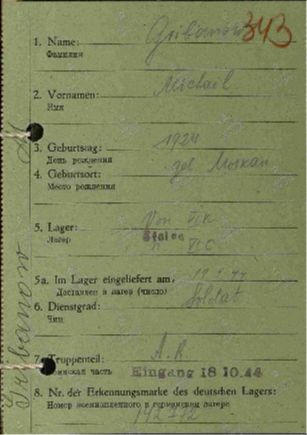 343
1. Name: Gribanow
Фамилия
2. Vornamen: Michael
Имя
3. Geburtstag: 1924
День рождения
4. Geburtsort: Moskau
Место рождения
5. Lager: Von
Лагер Stalag VI C
5a. Im Lager eingeliefert am,
Доставлен в лагер (число)
6. Dienstgrad: Soldat
Чин
7. Truppenteil: A.R
Воинская часть Eingang 18 10.44
8. Nr. der Erkennungsmarke des deutschen Lagers:
Номер военнопленного в германском лагере
Gribanow